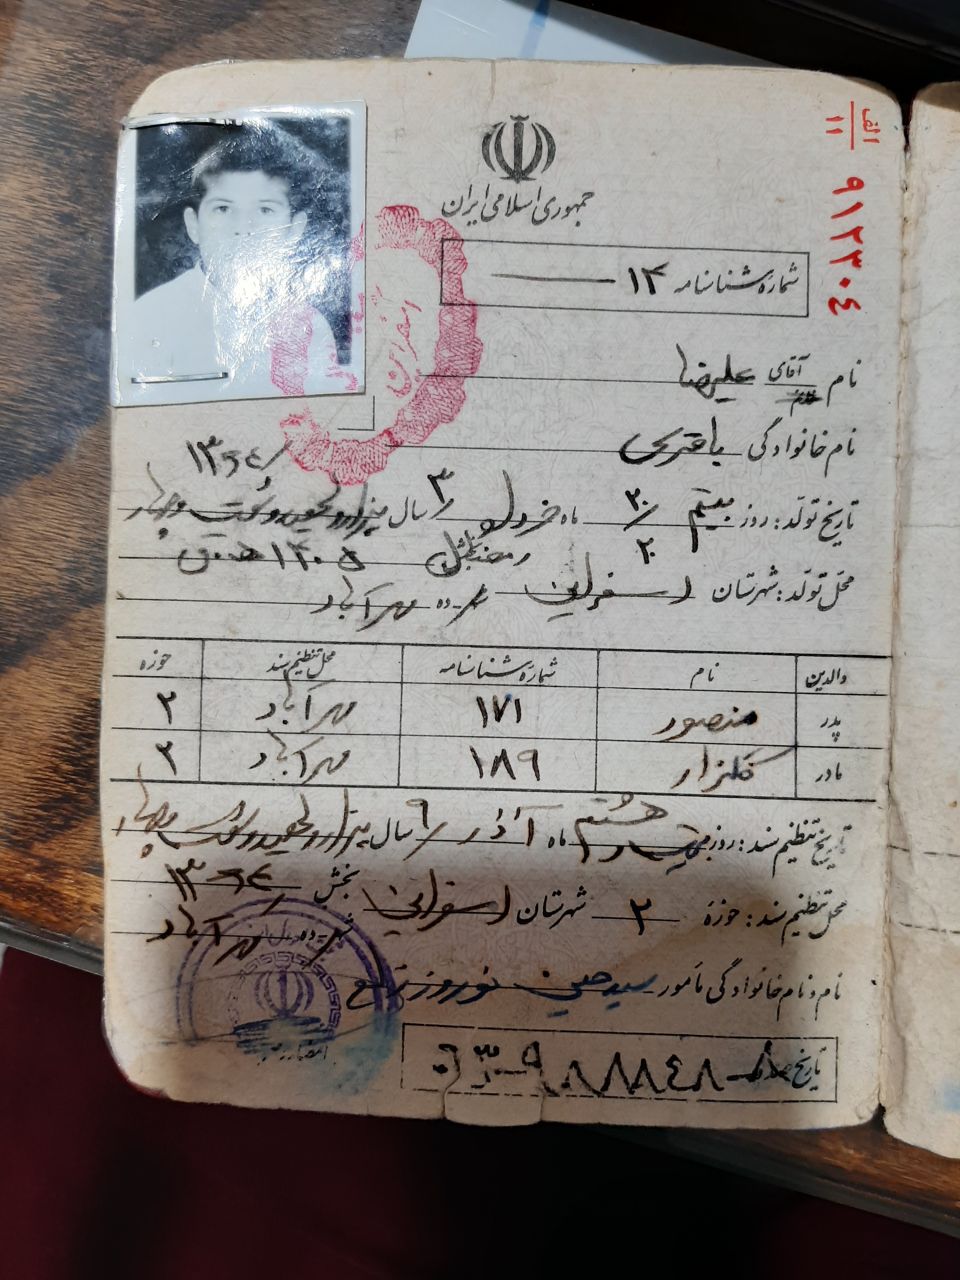 الف
۱۱
۹۱۲۳۰٤
جمهوری اسلامی ایران
شمارهٔ شناسنامه ۱۴
نام آقای علیرضا
نام خانوادگی باقری
۱۳٦٤/
تاریخ تولد: روز بیستم ۲۰/ ماه خرداد ۳/ سال یکهزار و سیصد و شصت و چهار
رمضان ۱۴۰۵ ه ق
محل تولد: شهرستان اسفراین ده مهرآباد
والدین نام شمارهٔ شناسنامه محل تنظیم سند حوزه
پدر منصور ۱۷۱ مهرآباد ۲
مادر گلزار ۱۸۹ مهرآباد ۲
هشتم
تاریخ تنظیم سند: روز ماه آذر ۹/ سال یکهزار و سیصد و شصت و چهار
۱۳٦٤
محل تنظیم سند: حوزهٔ ۲ شهرستان اسفراین بخش
ده مهرآباد
نام و نام خانوادگی مأمور سید حسین نوروز
تاریخ
اسفراین